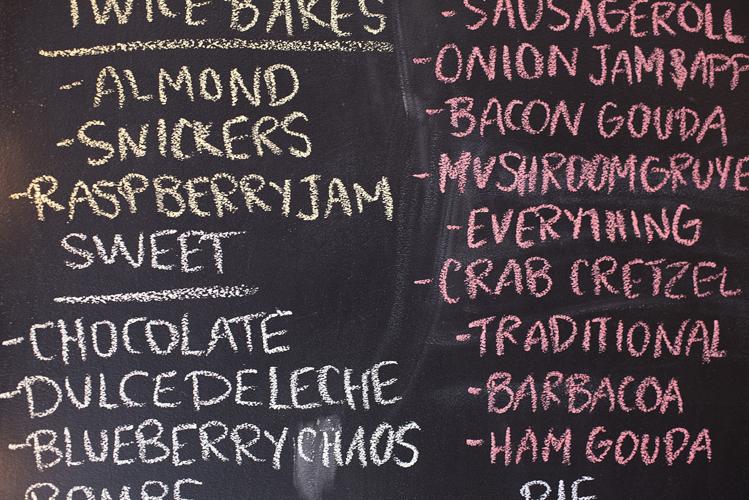 TWICE BAKES
-ALMOND
-SNICKERS
-RASPBERRY JAM
SWEET
-CHOCOLATE
-DULCE DE LECHE
-BLUEBERRY CHAOS
BOMBE
-SAUSAGE ROLL
-ONION JAM &
-BACON GOUDA
-MUSHROOM GRUYE
-EVERYTHING
-CRAB CRETZEL
-TRADITIONAL
-BARBACOA
-HAM GOUDA
PIE